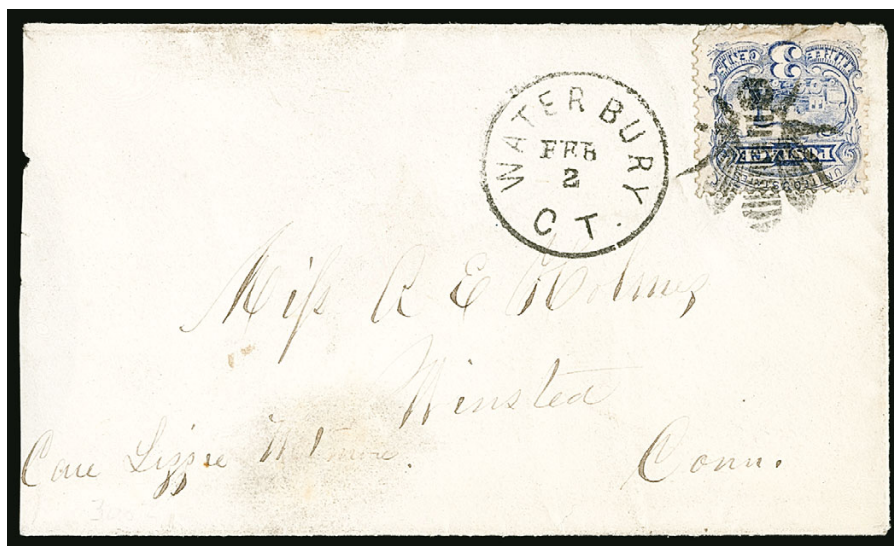 WATERBURY
FEB
2
CT.
3
POSTAGE
Miss R E Holmes
Winsted
Conn.
Care Lizzie